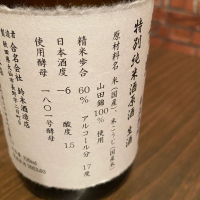 特別純米酒原酒 生酒
原材料名 米(国産)、米こうじ(国産米)
山田錦100%使用
精米歩合 60% アルコール分 17度
日本酒度 -6 酸度 1.5
使用酵母 一八〇一号酵母
製造者 合名会社 鈴木酒造店
秋田県大仙市長野字